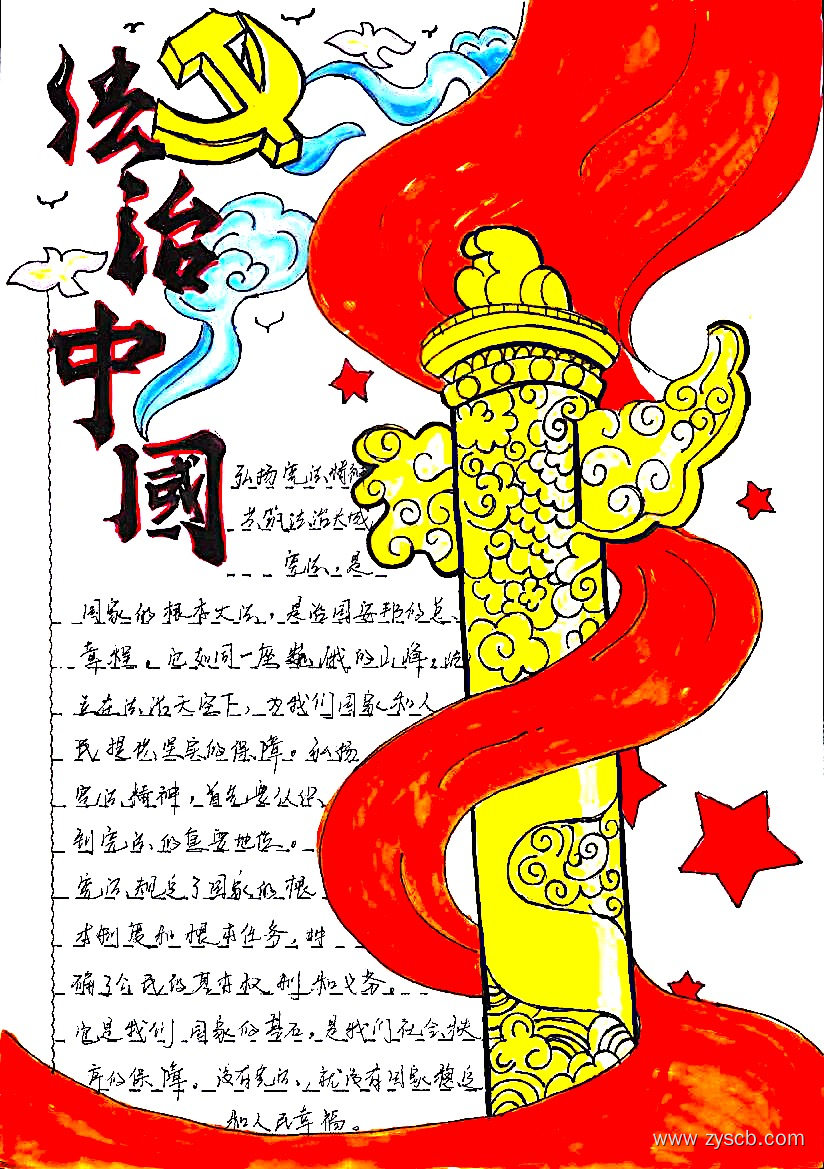 法治中國
弘扬宪法精神
共筑法治大城
宪法,是
国家的根本大法,是治国安邦的总
章程。它如同一座巍峨的山峰,屹
立在法治天空下,为我们国家和人
民提供坚实的保障。弘扬
宪法精神,首先要认识
到宪法的重要地位。
宪法规定了国家的根
本制度和根本任务,明
确了公民的基本权利和义务。
它是我们国家的基石,是我们社会秩
序的保障。没有宪法,就没有国家稳定
和人民幸福。
www.zyscb.com